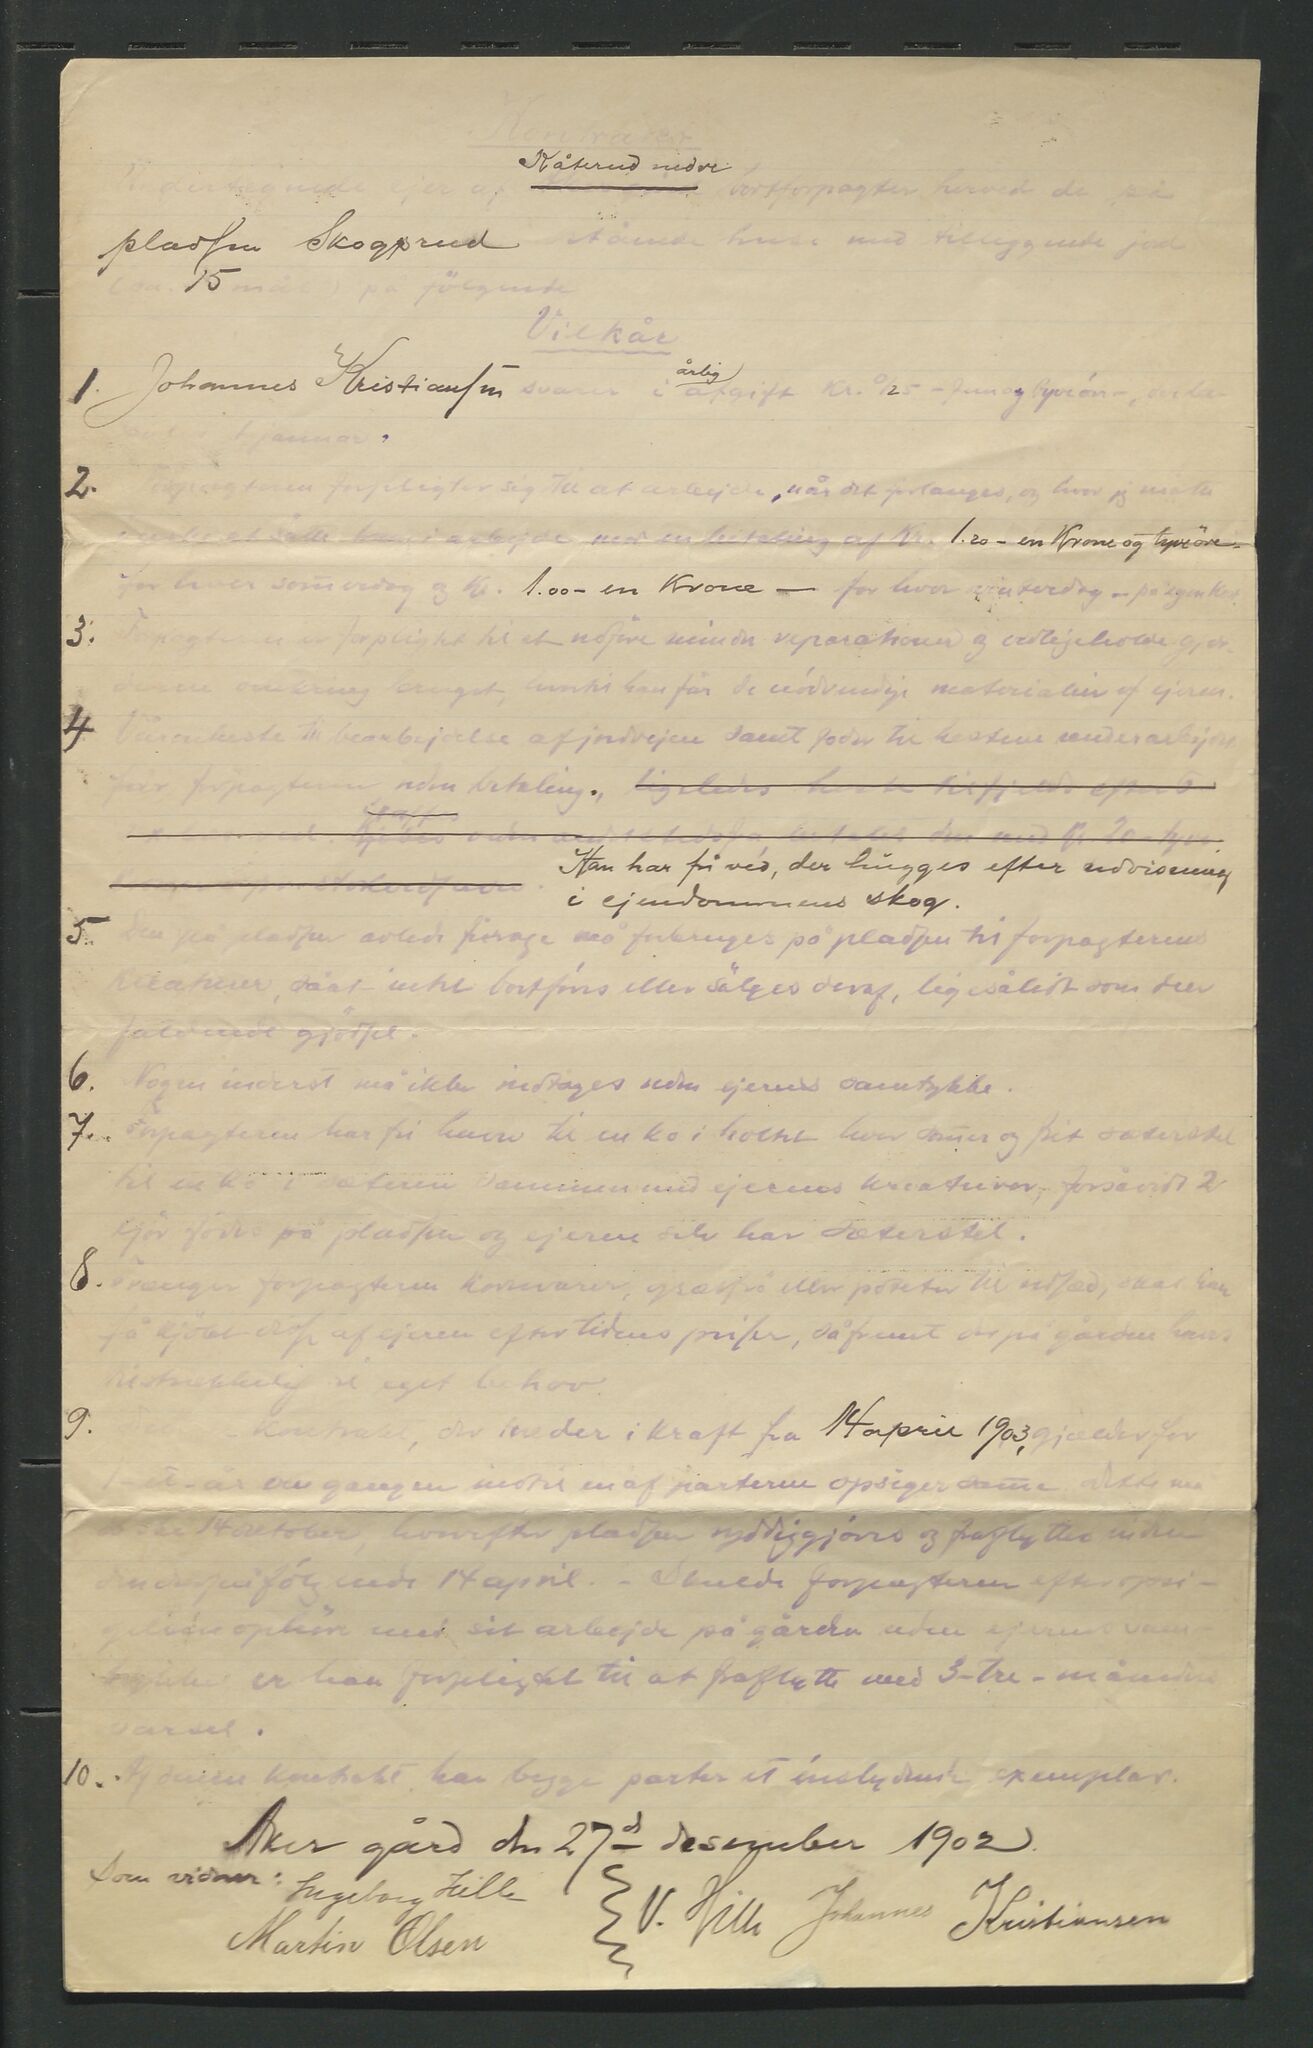 Kontrakt
Kåterud nedre
Undertegnede ejer af bortforpagter herved de på
pladsen Skogprud stående huse med tilliggende jord
(ca. 15 mål) på fölgende
Vilkår
1. Johannes Kristiansen svarer i årlig afgift Kr. 25 - fem og tyve kr -,
januar.
2. Forpagteren forpligter sig til at arbejde, når det forlanges, og hvor jeg måtte
önske at sätte ham i arbejde med en betaling af Kr. 1.20 - en Krone og tyve öre -
for hver sommerdag og Kr. 1.00 - en Krone - for hver vinterdag - på egen kost.
3. Forpagteren er forpligtet til at udföre mindre reparationer og vedligeholde gjer-
derne omkring bruget, hvortil han får de nödvendige materialier af ejeren.
4. Våronheste til bearbejdelse af jordvejen samt foder til hestene under arbejdet
får forpagteren uden betaling., ligeledes heste til
kjöres uden
Han har fri ved, der hugges efter udvisning
i ejendommens skog.
5. Den på pladsen avlede forage må forbruges på pladsen til forpagterens
kreaturer, såat intet bortföres eller sälges deraf, ligesålidt som den
faldende gjödsel.
6. Nogen inderst må ikke indtages uden ejerens samtykke.
7. Forpagteren har fri havn til en ko i holtet hver somer og frit sæterstel
til en ko i sæteren sammen med ejerens kreaturer, forsåvidt 2
kjör födes på pladsen og ejeren selv har sæterstel.
8. Trænger forpagteren kornvarer, græsfrö eller poteter til udsæd, skal han
få kjöbt dette af ejeren efter tidens priser, såfremt der på gården haves
tilstrækkelig til eget behov.
9. kontrakt, der træder i kraft fra 14 april 1903, gjælder for
1 - et - år om gangen indtil en af parterne opsiger same, dette må
ske 14 oktober, hvorefter pladsen ryddiggjöres og fraflyttes inden
den derpåfölgende 14 april. - Skulde forpagteren efter opsi-
gelsen ophöre med sit arbejde på gården uden ejerens sam-
tykke er han forpligtet til at fraflytte med 3 - tre - måneders
varsel.
10. Af denne kontrakt har begge parter et enslydende exemplar.
Aker gård den 27d desember 1902.
Som vidner: Ingeborg Hille
Martin Olsen
V. Hille Johannes Kristiansen